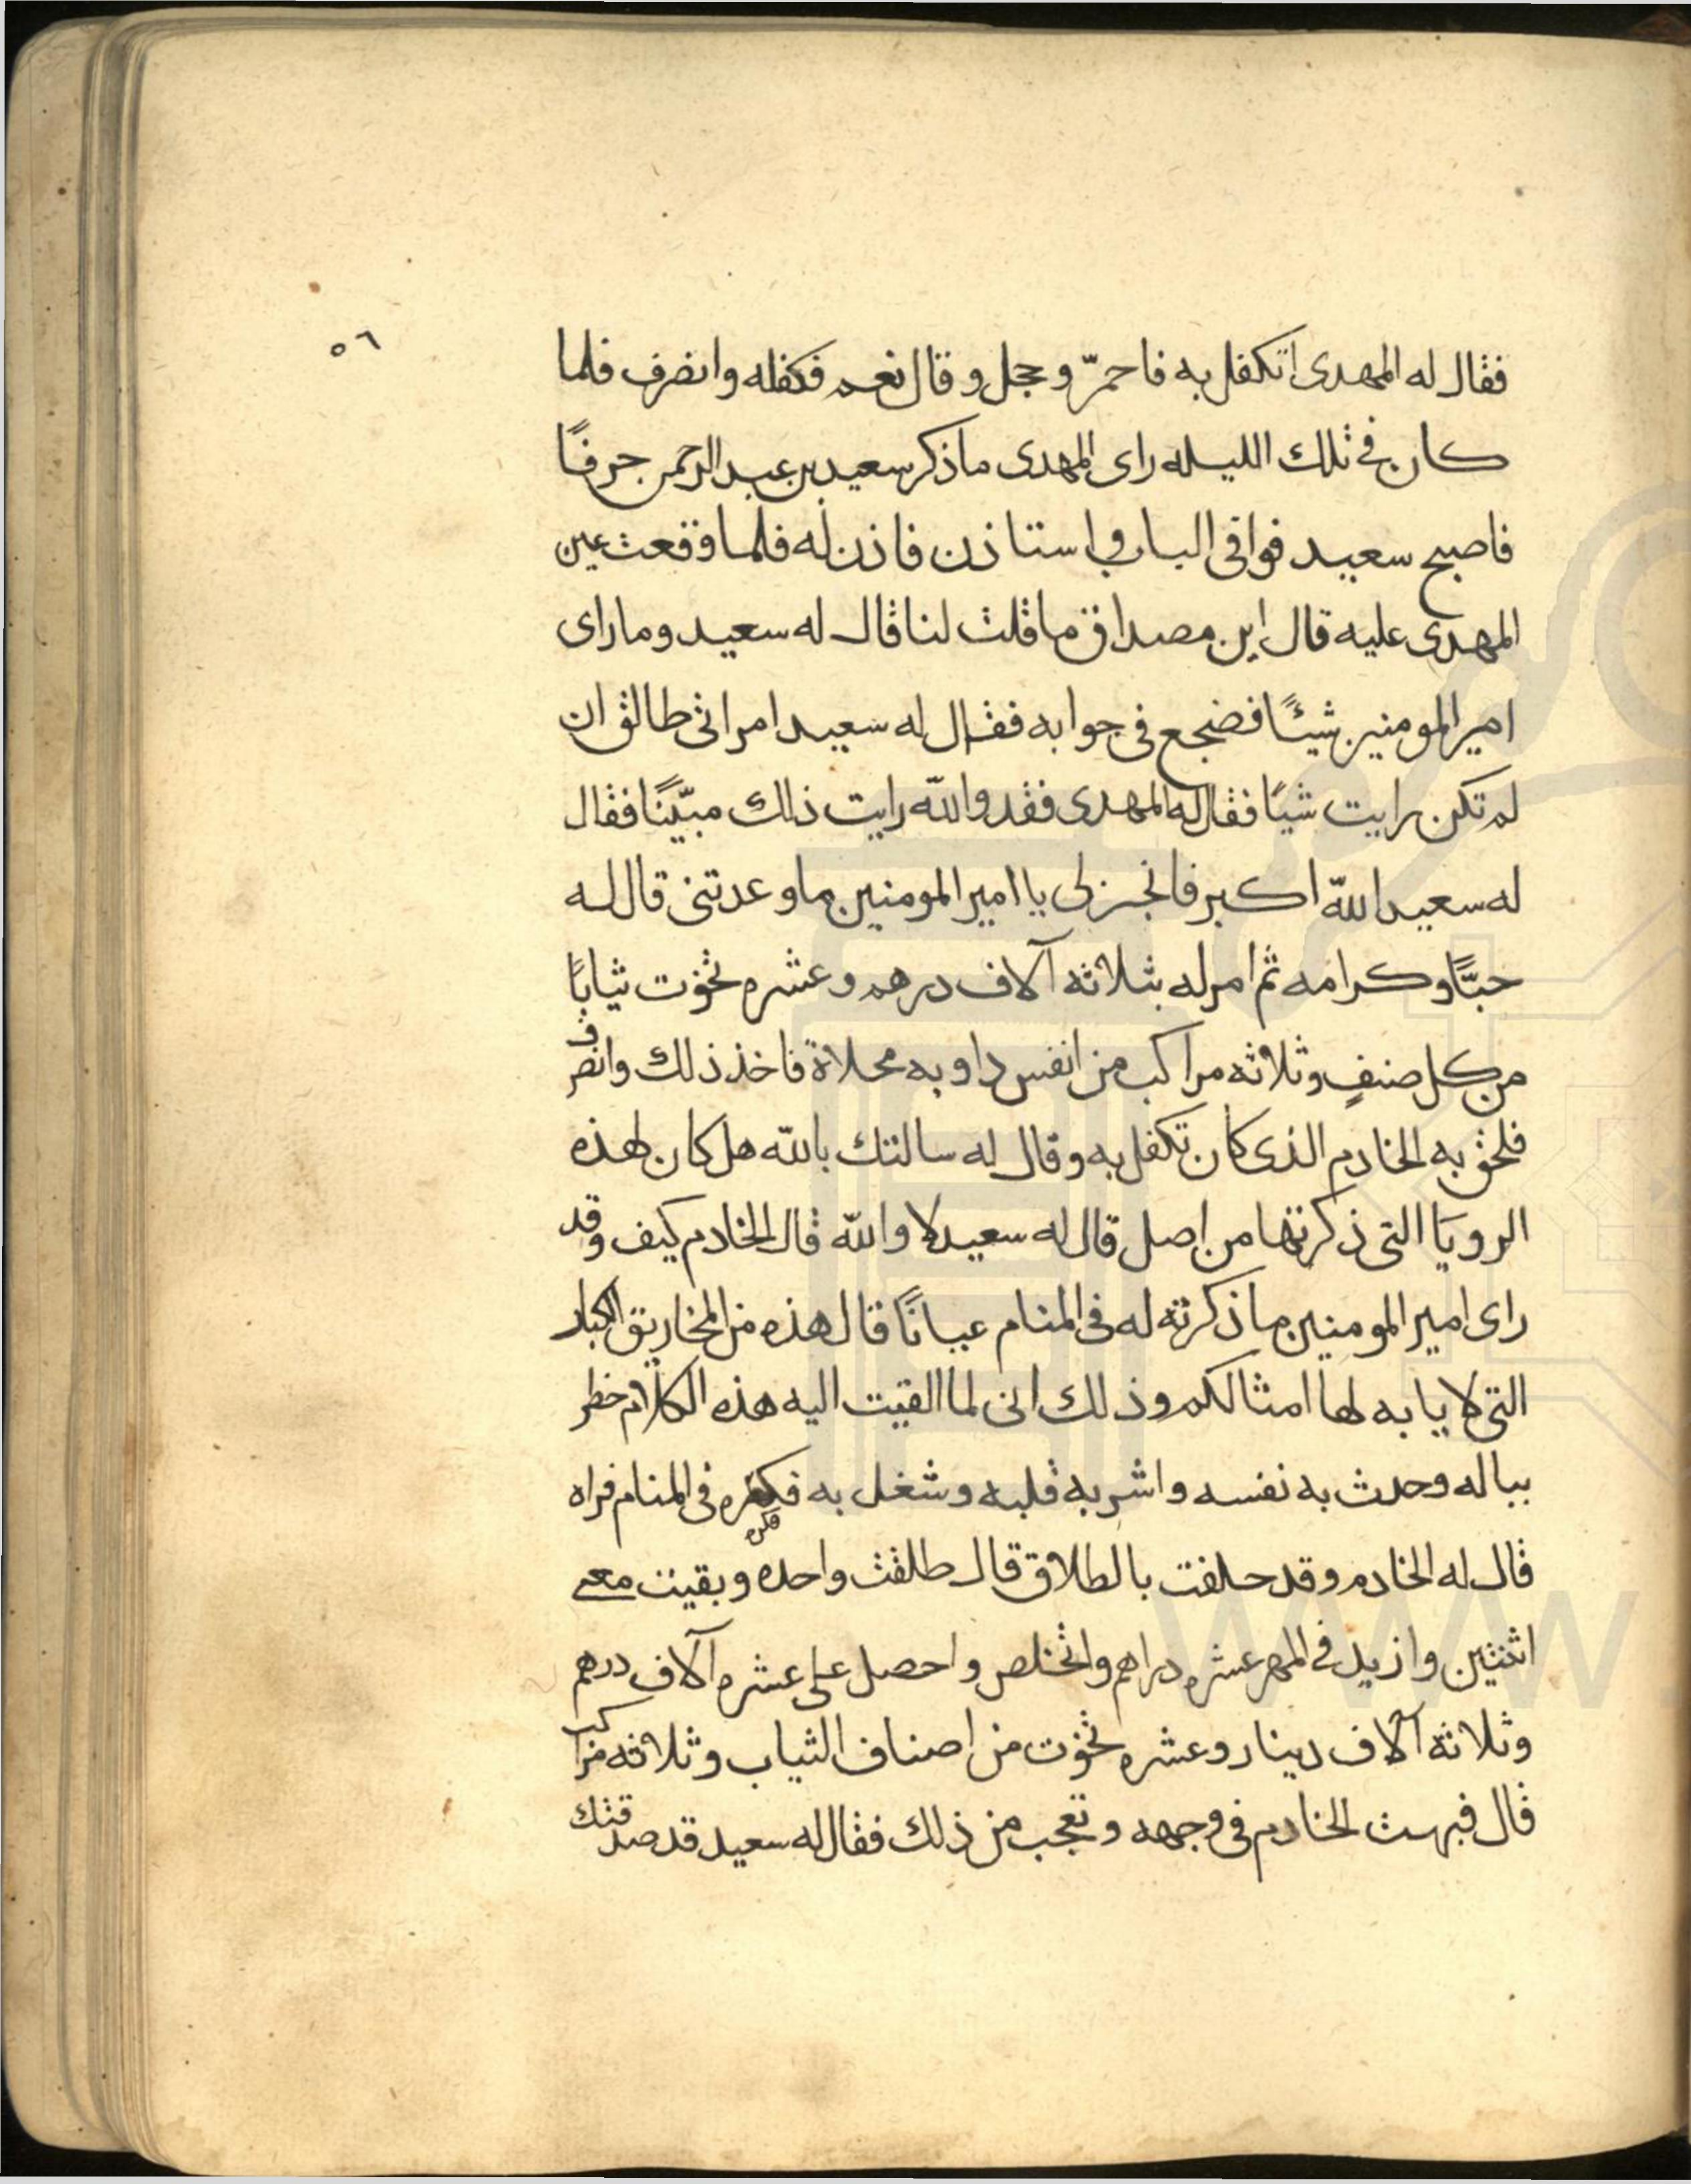 ٥٦
فقال له المهدى اتكفل به فاحمرّ وخجل وقال نعم فكفله وانصرف فلما
كان فى تلك الليله راى المهدى ماذكر سعيد بن عبد الرحمن حرفًا
فاصبح سعيد فوافى الباب واستاذن فاذن له فلما وقعت عين
المهدى عليه قال اين مصداق ماقلت لنا قال له سعيد وماراى
امير المومنين شيئًا فضجع فى جوابه فقال له سعيد امراتى طالق ان
لم تكن رايت شيًا فقال له المهدى فقد والله رايت ذلك مبيّنًا فقال
له سعيد الله اكبر فانجزلى يا امير المومنين ماوعدتنى قال له
حبًّا وكرامه ثم امرله بثلاثه آلاف درهم وعشره تخوت ثيابًا
من كل صنفٍ وثلاثه مراكب من انفس دوابه محلاة فاخذ ذلك وانصرف
فلحق به الخادم الذى كان تكفل به وقال له سالتك بالله هل كان لهذه
الرويا التى ذكرتها من اصل قال له سعيد لا والله قال الخادم كيف وقد
راى امير المومنين ماذكرته له فى المنام عيانًا قال هذه من المخاريق الكبار
التى لا يابه لها امثالكم وذلك انى لما القيت اليه هذه الكلام خطر
بباله وحدث به نفسه واشربه قلبه وشغل به فكره فى المنام فراه
فكره
قال له الخادم وقد حلفت بالطلاق قال طلقت واحده وبقيت معى
اثنتين وازيد فى المهر عشره دراهم واتخلص واحصل على عشره آلاف درهم
وثلاثة آلاف دينار وعشره تخوت من اصناف الثياب وثلاثه مراكب
قال فبهت الخادم فى وجهه وتعجب من ذلك فقال له سعيد قد صدقتك